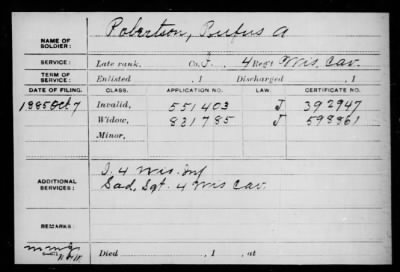 NAME OF SOLDIER: Robertson, Rufus A
SERVICE: Late rank, Co. J. 4 Regt Wis. Cav.
TERM OF SERVICE: Enlisted , 1 Discharged , 1
DATE OF FILING. CLASS. APPLICATION NO. LAW. CERTIFICATE NO.
1885 Oct 7 Invalid, 551403 J 392947
Widow, 821785 J 598861
Minor,
ADDITIONAL SERVICES: J. 4 Wis. Inf
Sad. Sgt. 4 Wis Cav.
REMARKS:
Died , 1 , at